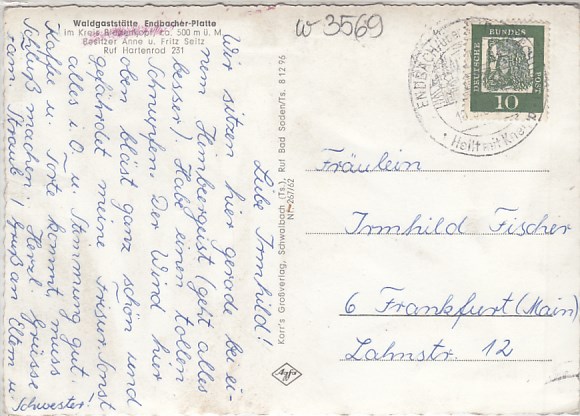 w 3569
Waldgaststätte Endbacher-Platte
im Kreis Biedenkopf, ca. 500 m ü. M.
Besitzer Anne u. Fritz Seitz
Ruf Hartenrod 231
Liebe Irmhild!
Wir sitzen hier gerade bei ei-
nem Himbeergeist (geht alles
besser). Habe einen tollen
Schnupfen. Der Wind hier
oben bläst ganz schön und
gefährdet meine Frisur. Sonst
alles i. O. u. Stimmung gut.
Kaffee u. Torte kommt, muss
Schluß machen. Herzl. Grüsse
von Traute; Gruß an Eltern u
Schwester!
Korr's Großverlag, Schwalbach (Ts.), Ruf Bad Soden/Ts. 8 12 96
Nr. 267/62
Agfa
ENDBACH
Heilt mit Kneipp
DEUTSCHE BUNDESPOST
10
Fräulein
Irmhild Fischer
6 Frankfurt (Main)
Lahnstr. 12